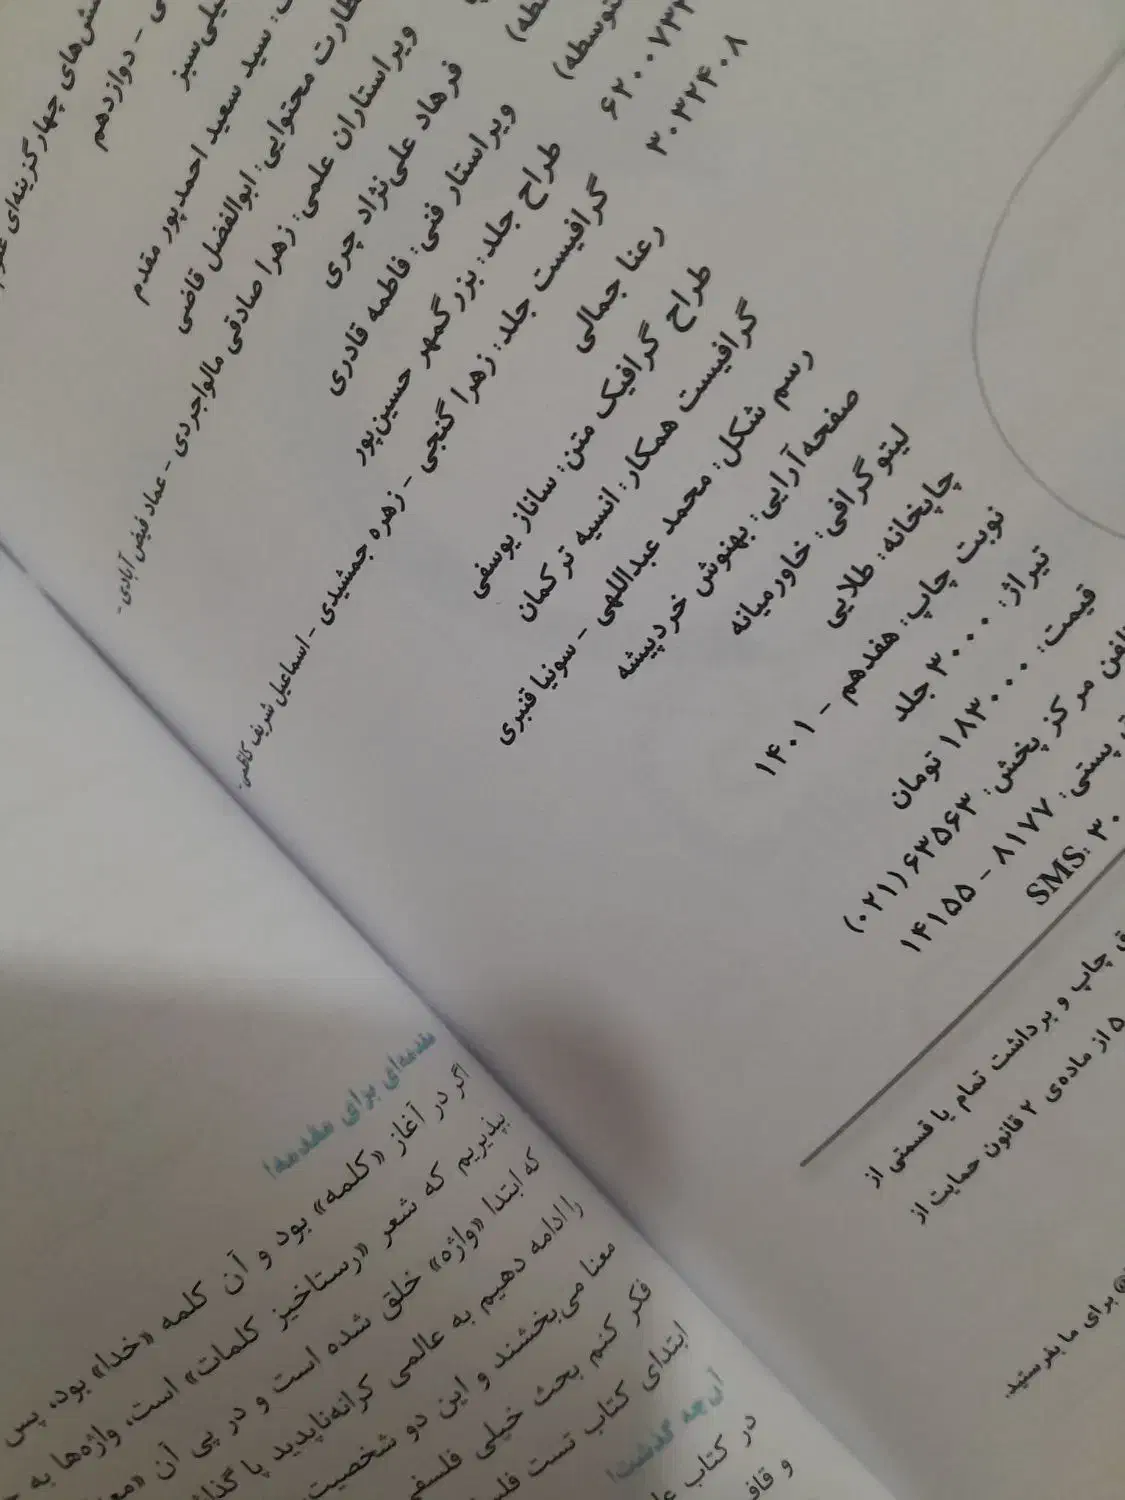 ش‌های چهارگزینه‌ای
ی - دوازدهم
یلی سبز
: سید سعید احمدپور مقدم
ظارت محتوایی: ابوالفضل قاضی
ویراستاران علمی: زهرا صادقی مالواجردی - عماد فیض آبادی -
فرهاد علی‌نژاد چری
ویراستار فنی: فاطمه قادری
طراح جلد: بزرگمهر حسین‌پور
گرافیست جلد: زهرا گنجی - زهره جمشیدی - اسماعیل شریف کاظمی -
رعنا جمالی
طراح گرافیک متن: ساناز یوسفی
گرافیست همکار: انسیه ترکمان
رسم شکل: محمد عبداللهی - سونیا قنبری
صفحه‌آرایی: بهنوش خردپیشه
لیتوگرافی: خاورمیانه
چاپخانه: طلایی
نوبت چاپ: هفدهم - ۱۴۰۱
تیراژ: ۳۰۰۰ جلد
قیمت: ۱۸۳۰۰۰ تومان
لفن مرکز پخش: ۶۳۵۶۳ (۰۲۱)
پستی: ۸۱۷۷ - ۱۴۱۵۵
SMS: ۳۰
طه)
توسطه)
۶۲۰۰۷۳۲
۳۰۳۲۴۰۸
ق چاپ و برداشت تمام یا قسمتی از
۵ از ماده‌ی ۲ قانون حمایت از
برای ما بفرستید.
مقدمه‌ای برای مقدمه!
اگر در آغاز «کلمه» بود و آن کلمه «خدا» بود، پس
بپذیریم که شعر «رستاخیز کلمات» است، واژه‌ها به
که ابتدا «واژه» خلق شده است و در پی آن «مع
را ادامه دهیم به عالمی کرانه‌ناپدید پا گذا
معنا می‌بخشند و این دو شخصیت
فکر کنم بحث خیلی فلسفی
ابتدای کتاب تست فلس
آن‌چه گذشت!
در کتاب عل
و قاف